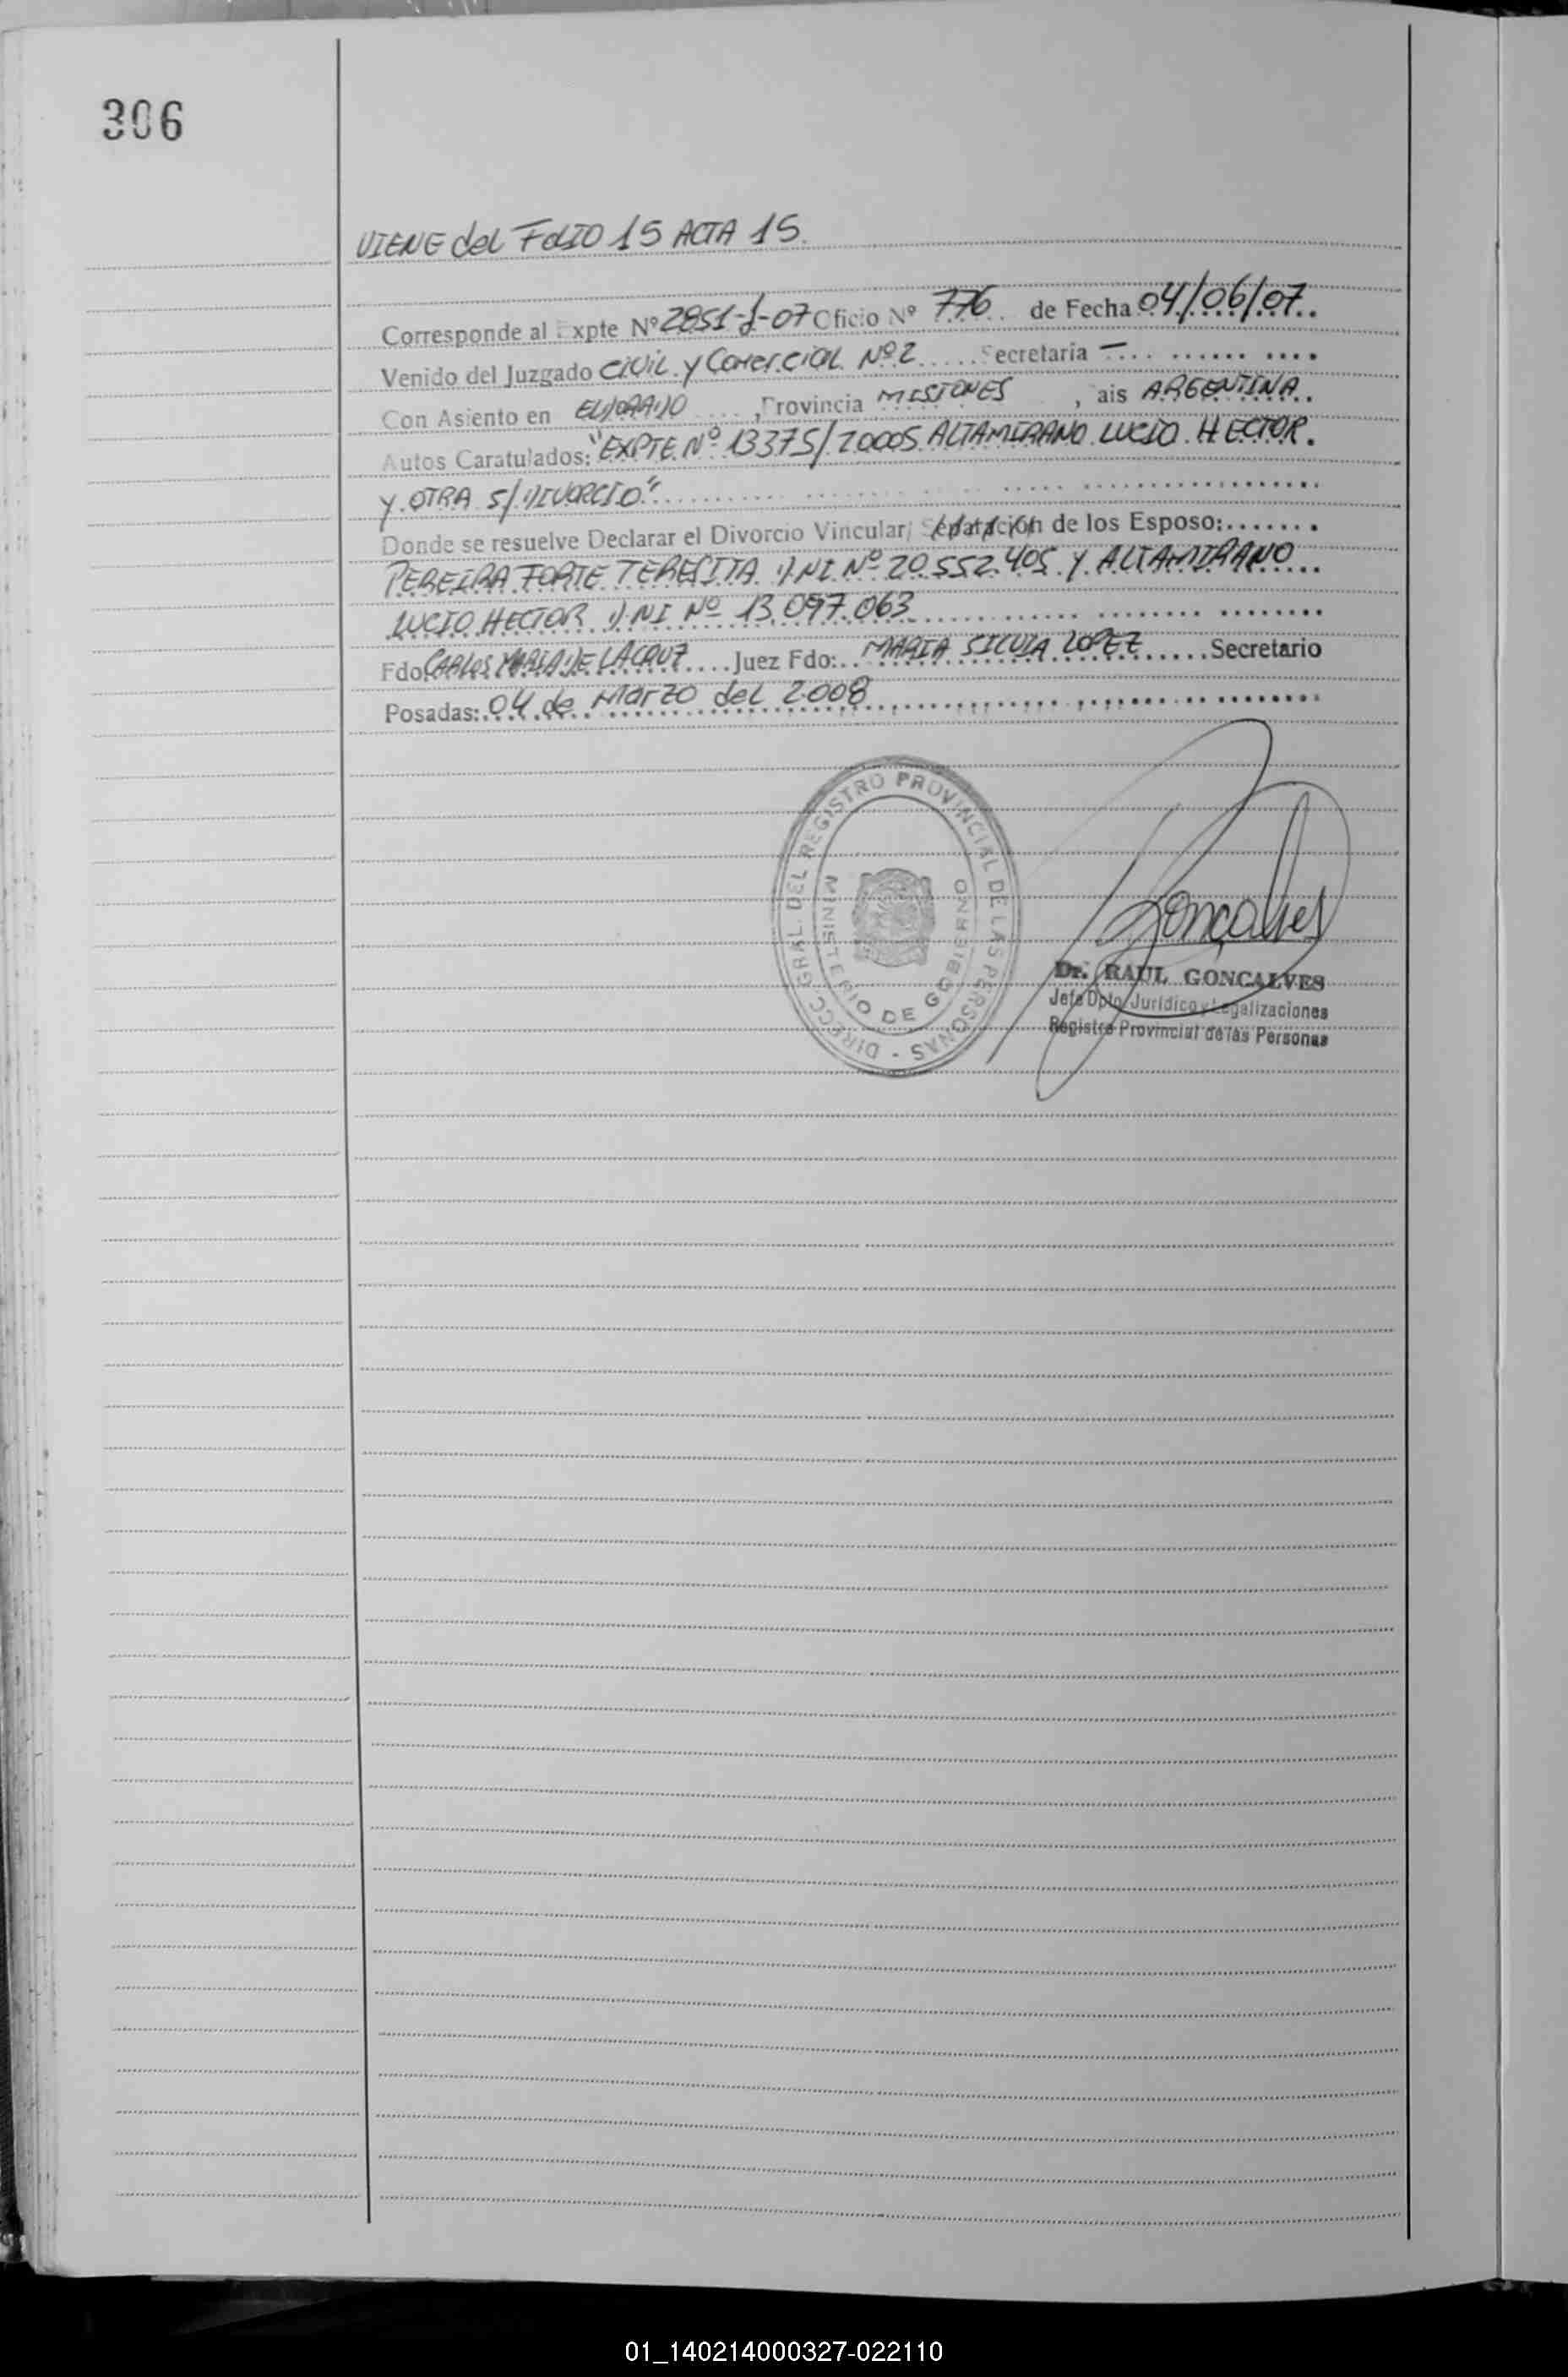 306
VIENE del FOLIO 15 ACTA 15.
Corresponde al Expte Nº 2851-J-07 Oficio Nº 776 de Fecha 04/06/07
Venido del Juzgado CIVIL y COMERCIAL Nº 2 Secretaria -
Con Asiento en ELDORADO, Provincia MISIONES, ais ARGENTINA
Autos Caratulados: "EXPTE. Nº 13375/2.0005 ALTAMIRANO LUCIO HECTOR
y OTRA S/DIVORCIO"
Donde se resuelve Declarar el Divorcio Vincular/ Separación de los Esposo:
PEREIRA FORTE TERESITA DNI Nº 20.552.405 Y ALTAMIRANO
LUCIO HECTOR DNI Nº 13.097.063
Fdo CARLOS MARIA DE LACRUZ Juez Fdo: MARIA SICULA LOPEZ Secretario
Posadas: 04 de Marzo del 2.008
DIRECC. GRAL. DEL REGISTRO PROVINCIAL DE LAS PERSONAS -
MINISTERIO DE GOBIERNO
Goncalves
Dr. RAUL GONCALVES
Jefe Dpto. Jurídico y Legalizaciones
Registro Provincial de las Personas
01_140214000327-022110